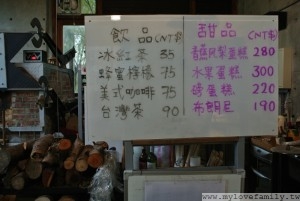 飲品 (NT$)
冰紅茶 35
蜂蜜檸檬 75
美式咖啡 75
台灣茶 90
甜品 (NT$)
香蕉巧果蛋糕 280
水果蛋糕 300
磅蛋糕 220
布朗尼 190
www.mylovefamily.tw